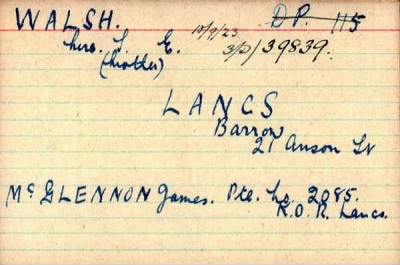 WALSH. 10/9/23 D.P. 115
Mrs. J. E. 3/D/39839.
(Mother)
LANCS
Barrow
21 Anson St
McGLENNON James. Pte. No. 2085.
R.O.R. Lancs.